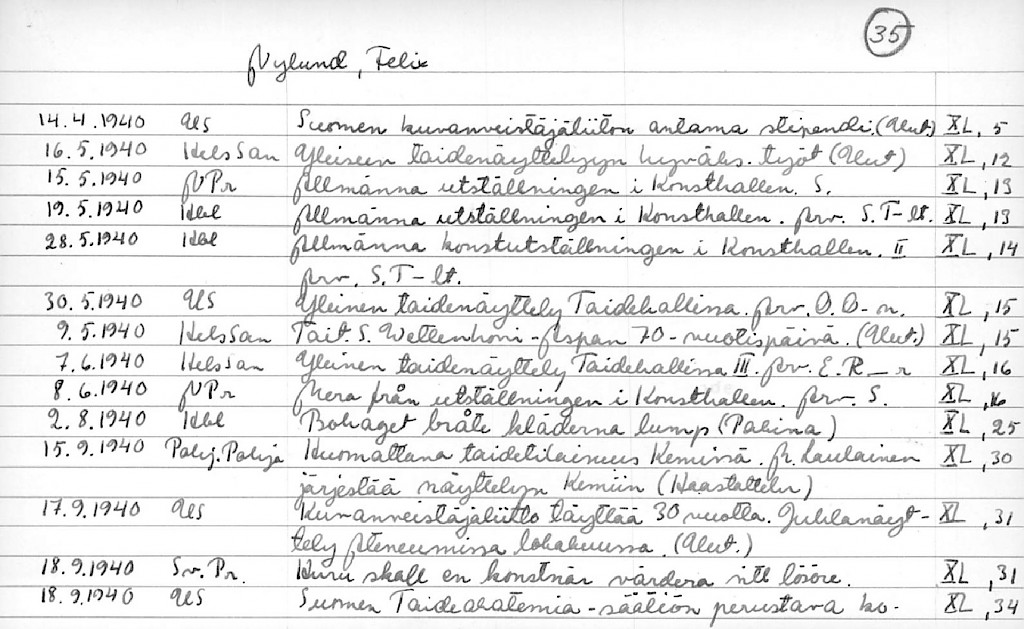 35
Nylund, Felix
14.4.1940 US Suomen kuvanveistäjäliiton antama stipendi. (Uut.) XL, 5
16.5.1940 HelsSan Yleiseen taidenäyttelyyn hyväks. työt (Uut.) XL, 12
15.5.1940 NPr Allmänna utställningen i Konsthallen. S. XL, 13
19.5.1940 Hbl Allmänna utställningen i Konsthallen. Arv. S.T-lt. XL, 13
28.5.1940 Hbl Allmänna konstutställningen i Konsthallen. II XL, 14
Arv. S.T-lt.
30.5.1940 US Yleinen taidenäyttely Taidehallissa. Arv. O.O-n. XL, 15
9.5.1940 HelsSan Tait. S. Wettenhovi-Aspan 70-vuotispäivä. (Uut.) XL, 15
7.6.1940 HelsSan Yleinen taidenäyttely Taidehallissa III. Arv. E.R_r XL, 16
8.6.1940 NPr Mera från utställningen i Konsthallen. Arv. S. XL, 16
2.8.1940 Hbl Bohaget bråte kläderna lump (Pakina) XL, 25
15.9.1940 Pohj. Pohja Huomattava taidetilaisuus Kemissä. A. Laulainen XL, 30
järjestää näyttelyn Kemiin (Haastattelu)
17.9.1940 US Kuvanveistäjäliitto täyttää 30 vuotta. Juhlanäyt- XL, 31
tely Ateneumissa lokakuussa. (Uut.)
18.9.1940 Sv. Pr. Huru skall en konstnär värdera sitt lösöre. XL, 31
18.9.1940 US Suomen Taideakatemia-säätiön perustava ko- XL, 34